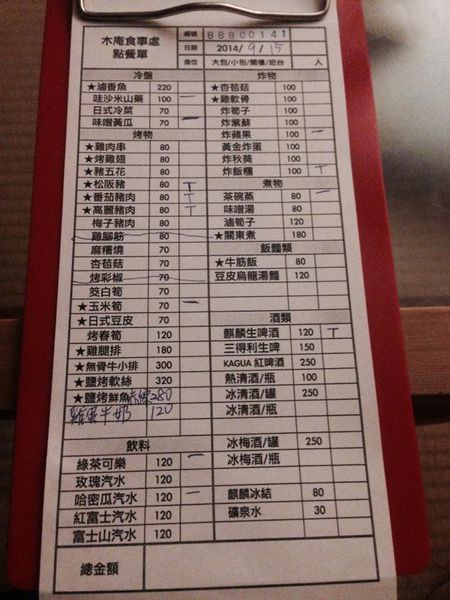 木庵食事處
點餐單
編號 88800141
日期 2014/9/15
座位 大包/小包/閣樓/吧台 人
冷盤
★滷香魚 220
哇沙米山藥 100 一
日式冷菜 70
味噌黃瓜 70 一
烤物
★雞肉串 80
★烤雞翅 80
★豬五花 80
★松阪豬 80 T
★番茄豬肉 80 T
★高麗豬肉 80 T
梅子豬肉 80
雞腳筋 80
麻糬燒 70
杏苞菇 70
烤彩椒 70
筊白筍 70
★玉米筍 70 一
★日式豆皮 70
烤春筍 120
★雞腿排 180
★無骨牛小排 300
★鹽烤軟絲 320
★鹽烤鮮魚 280
牛奶 120
飲料
綠茶可樂 120 一
玫瑰汽水 120
哈密瓜汽水 120 一
紅富士汽水 120
富士山汽水 120
總金額
炸物
★杏苞菇 100
★雞軟骨 100
炸筍子 100
炸紫蘇 100
炸蘋果 100 一
黃金炸蛋 100
炸秋葵 100
炸飯糰 100 T
煮物
茶碗蒸 80 一
味噌湯 80
滷筍子 120
★關東煮 180
飯麵類
★牛筋飯 80
豆皮烏龍湯麵 120
酒類
麒麟生啤酒 120 T
三得利生啤 150
KAGUA 紅啤酒 250
熱清酒/瓶 100
冰清酒/罐 250
冰清酒/瓶
冰梅酒/罐 250
冰梅酒/瓶
麒麟冰結 80
礦泉水 30